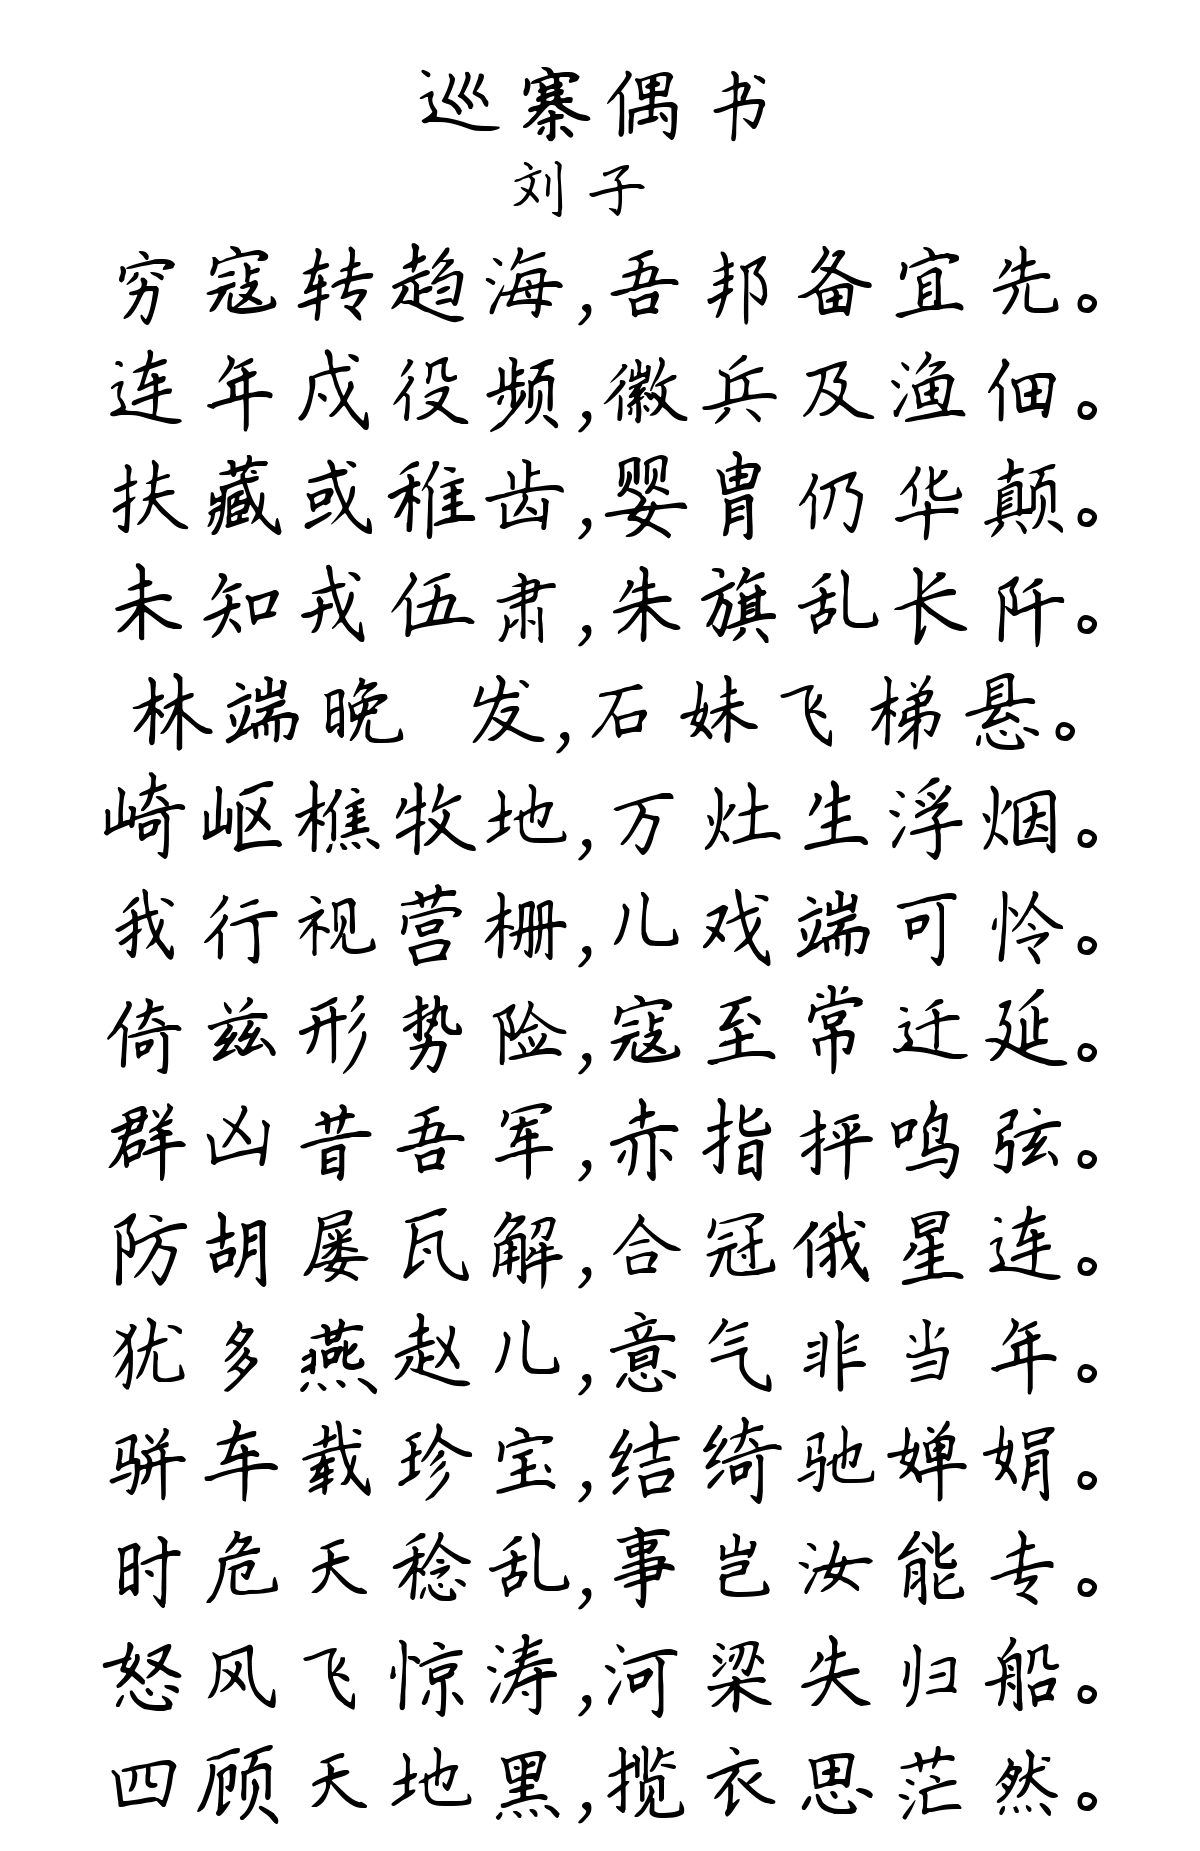 巡寨偶书
刘子
穷寇转趋海,吾邦备宜先。
连年戍役频,徽兵及渔佃。
扶藏或稚齿,婴胄仍华颠。
未知戎伍肃,朱旗乱长阡。
林端晚 发,石妹飞梯悬。
崎岖樵牧地,万灶生浮烟。
我行视营栅,儿戏端可怜。
倚兹形势险,寇至常迁延。
群凶昔吾军,赤指抨鸣弦。
防胡屡瓦解,合冠俄星连。
犹多燕赵儿,意气非当年。
骈车载珍宝,结绮驰婵娟。
时危天稔乱,事岂汝能专。
怒风飞惊涛,河梁失归船。
四顾天地黑,揽衣思茫然。